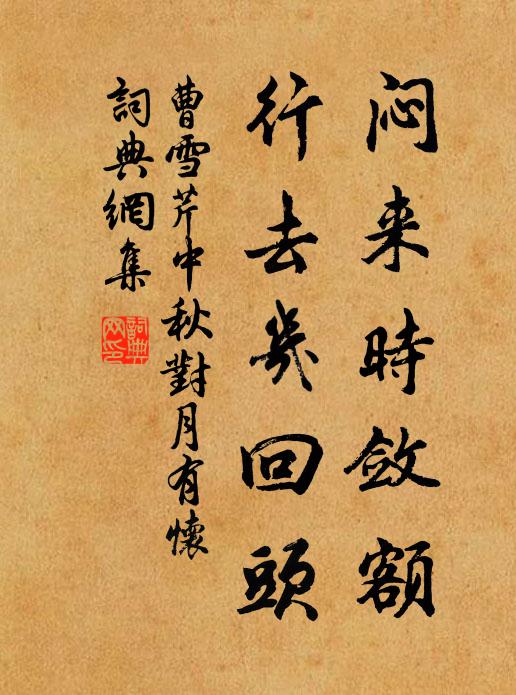 闷来時敛額
行去幾回頭
曹雪芹中秋對月有懷
詞典網集
詞典網印